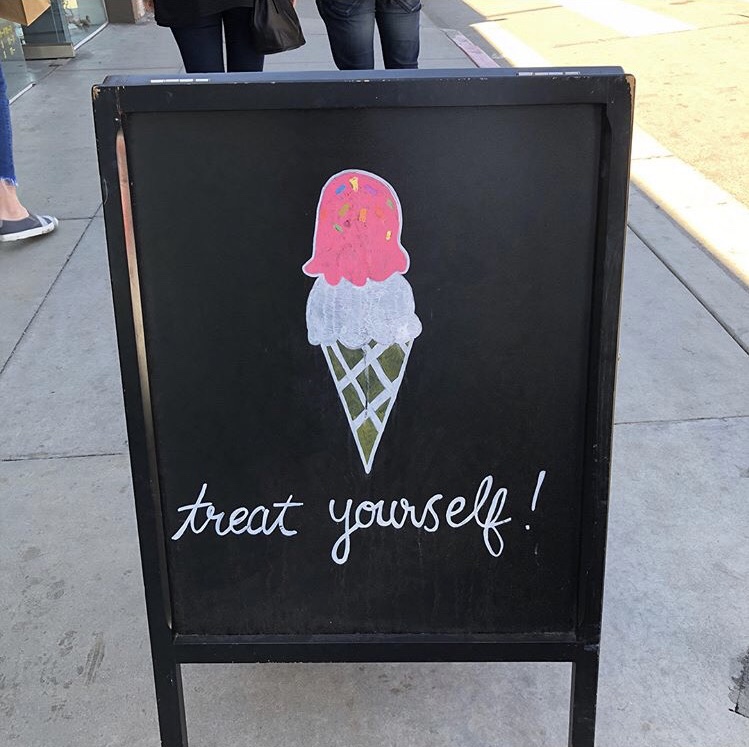 treat yourself!